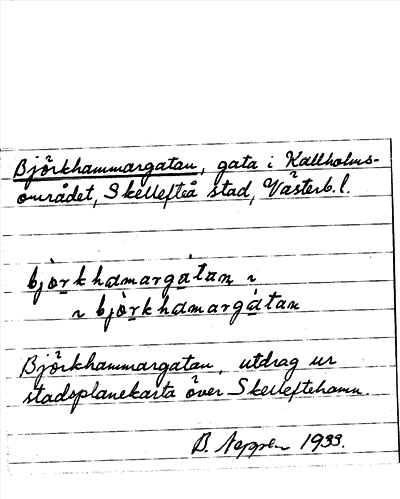 Björkhammargatan, gata i Kallholms-
området, Skellefteå stad, Västerb. l.
bjò̤rkhamargàtan, i
~ bjò̤rkhamargàtan
Björkhammargatan, utdrag ur
stadsplanekarta över Skelleftehamn.
B. 1933.